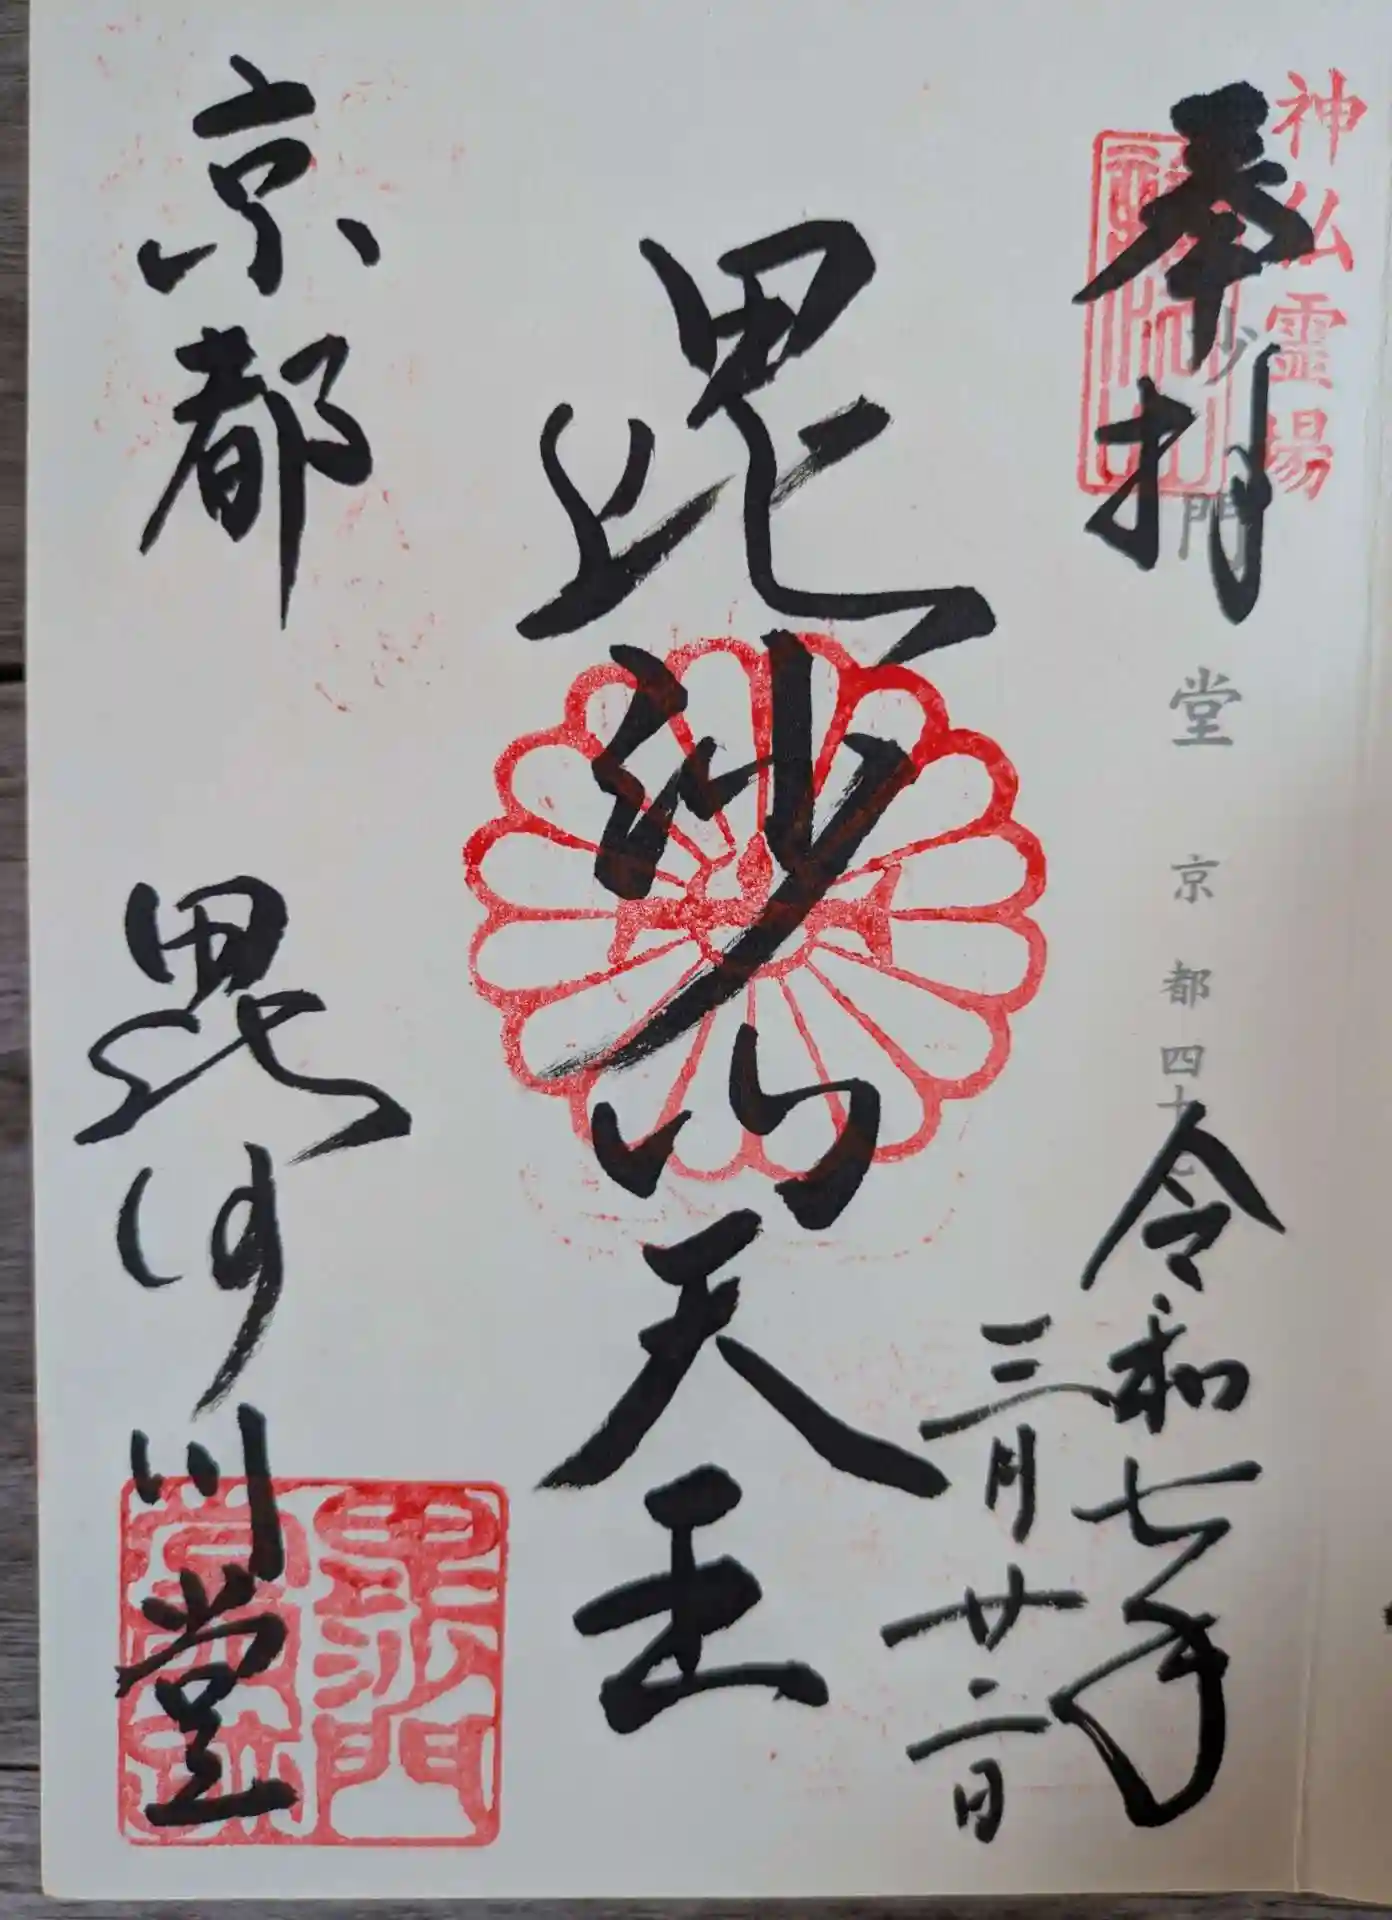 神仏霊場
奉拝
沙門堂 京都四十
令和七年
三月廿二日
毘沙門天王
京都
毘沙門堂
毘沙門
堂跡